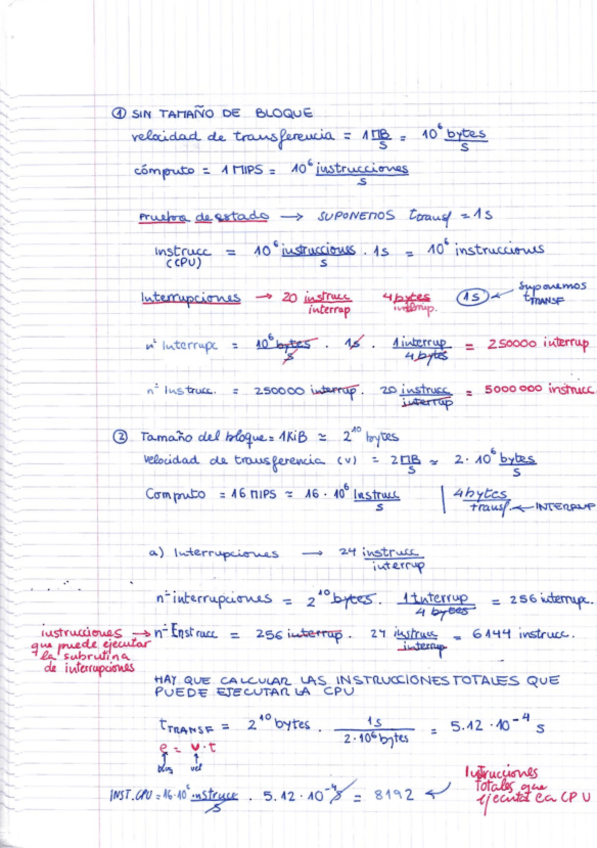 ① SIN TAMAÑO DE BLOQUE
velocidad de transferencia = 1 MB/s = 10⁶ bytes/s
cómputo = 1 MIPS = 10⁶ instrucciones/s
Prueba de estado → SUPONEMOS t transf = 1s
Instrucc (CPU) = 10⁶ instrucciones/s · 1s = 10⁶ instrucciones
Interrupciones → 20 instrucc/interrap 4 bytes/interrup. (1s) ← Suponemos tTRANSF
nº Interrupc = 10⁶ bytes/s · 1s · 1 interrup/4 bytes = 250000 interrup
nº Instrucc. = 250000 interrup · 20 instrucc/interrup = 5000000 instrucc.
② Tamaño del bloque = 1KiB ≈ 2¹⁰ bytes
Velocidad de transferencia (v) = 2 MB/s ≈ 2 · 10⁶ bytes/s
Computo = 16 MIPS ≈ 16 · 10⁶ Instrucc/s | 4 bytes/transf. ← INTERRUP
a) Interrupciones → 24 instrucc/interrup
nº interrupciones = 2¹⁰ bytes. 1 Interrup/4 bytes = 256 interrupc.
instrucciones que puede ejecutar la subrutina de interrupciones → nº Instrucc = 256 interrup. 24 instrucc/interrup = 6144 instrucc.
HAY QUE CALCULAR LAS INSTRUCCIONES TOTALES QUE
PUEDE EJECUTAR LA CPU
tTRANSF = 2¹⁰ bytes · 1s/2·10⁶ bytes = 5.12 · 10⁻⁴ s
e = v · t
↑ ↑
bloq vel
INST. CPU = 16·10⁶ instrucc/s · 5.12 · 10⁻⁴ s = 8192 ← Instrucciones totales que ejecuta la CPU